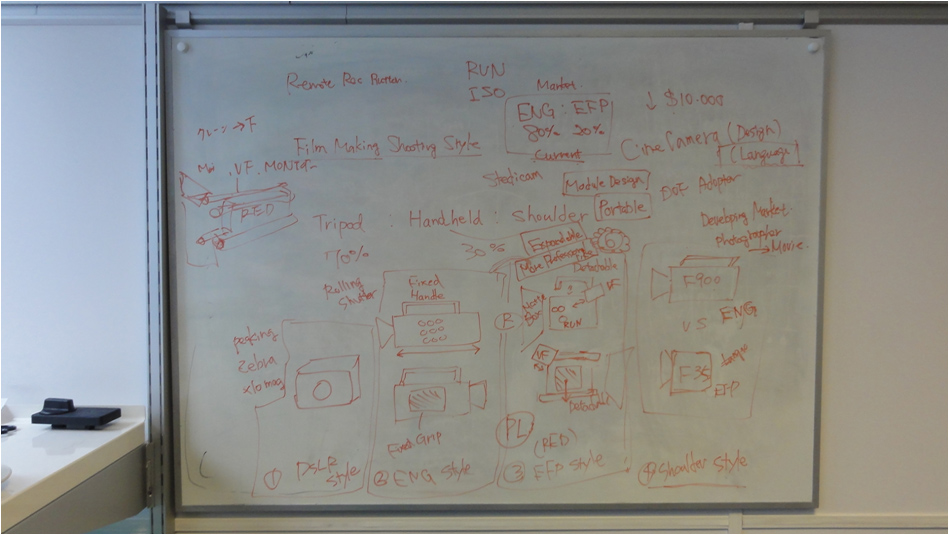 Remote Rec Button.
RUN
ISO
Market.
ENG : EFP
80% 20%
Current
↓ $10.000
クレーン → 下
Film Making Shooting Style
Cine Camera (Design)
(Language)
VF. MONITOR
RED
Stedicam
Module Design
DOF Adapter
Portable
Tripod : Handheld : Shoulder
70%
30%
Expandable
6
Developing Market
Photographer
→ Movie.
More Professional
Detachable
VF
RUN
Rolling
Shutter
Fixed
Handle
F900
VS ENG
F35
EFP
peaking
Zebra
x10 mag
VF
Detachable
Fixed Grip
PL
(RED)
① DSLR Style
② ENG Style
③ EFP Style
④ Shoulder Style